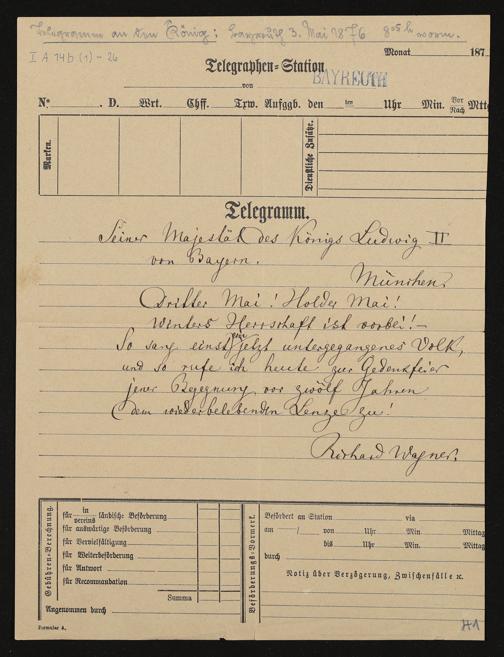 Telegramm an den König: Bayreuth 3. Mai 1876 8 05 h vorm.
I A 14b (1) - 26
Monat 187
Telegraphen-Station
von BAYREUTH
No . D. Wrt. Chff. Trw. Aufggb. den ten Uhr Min. Vor Nach Mitt
Marken.
Dienstliche Zusätze.
Telegramm.
Seiner Majestät des Königs Ludwig II
von Bayern.
München.
Dritter Mai! Holder Mai!
Winters Herrschaft ist vorbei! –
So sang einst jetzt untergegangenes Volk,
und so rufe ich heute zur Gedenkfeier
jener Begegnung vor zwölf Jahren
dem wiederbelebenden Lenze zu!
Richard Wagner.
Gebühren-Berechnung.
für in vereins ländische Beförderung
für auswärtige Beförderung
für Vervielfältigung
für Weiterbeförderung
für Antwort
für Recommandation
Summa
Angenommen durch
Beförderungs-Vormerk.
Befördert an Station via
am / von Uhr Min. Mittag
bis Uhr Min. Mittag
durch
Notiz über Verzögerung, Zwischenfälle ꝛc.
Formular A.